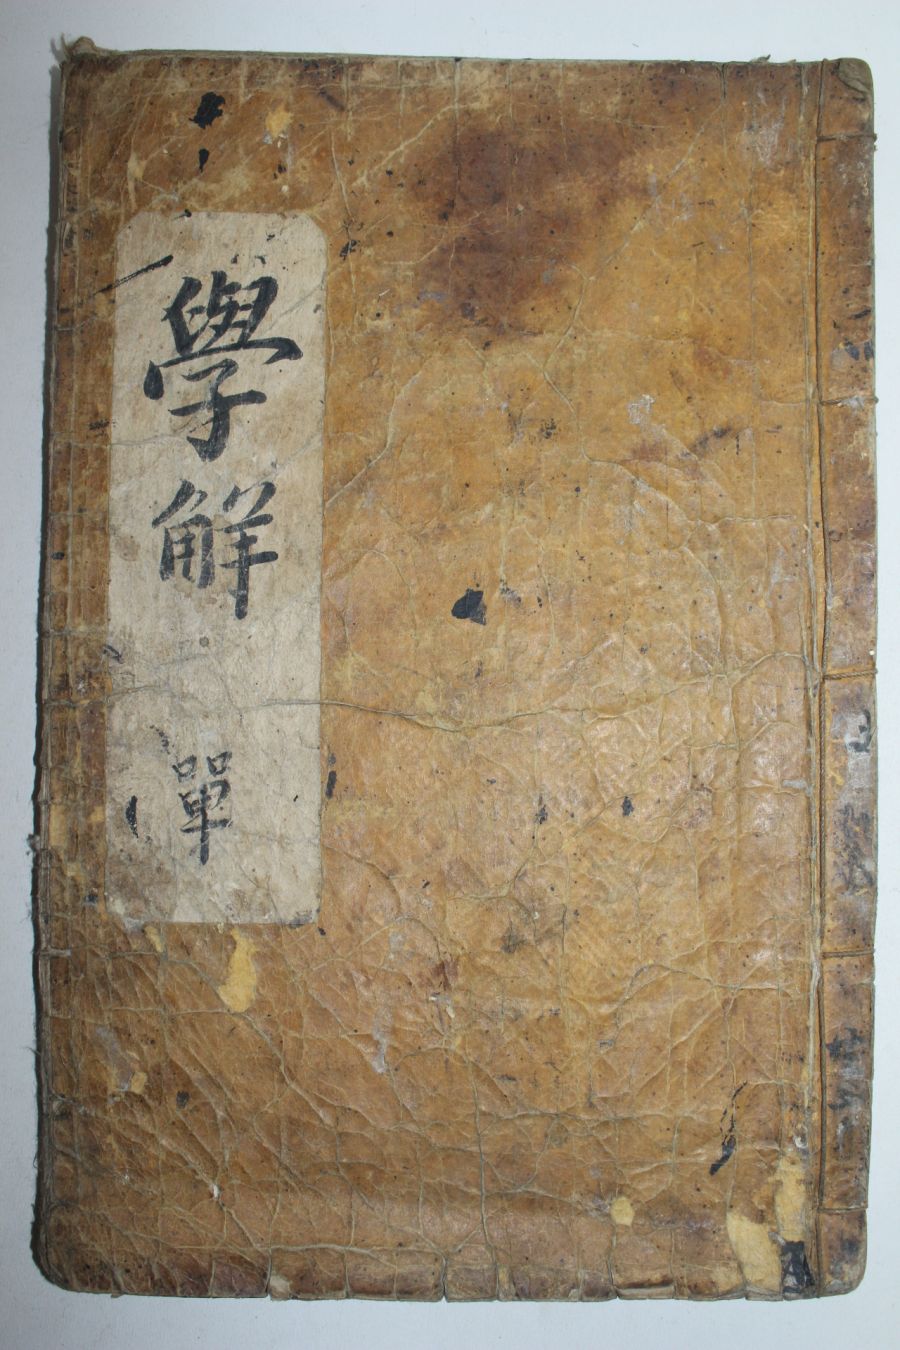 學解 單